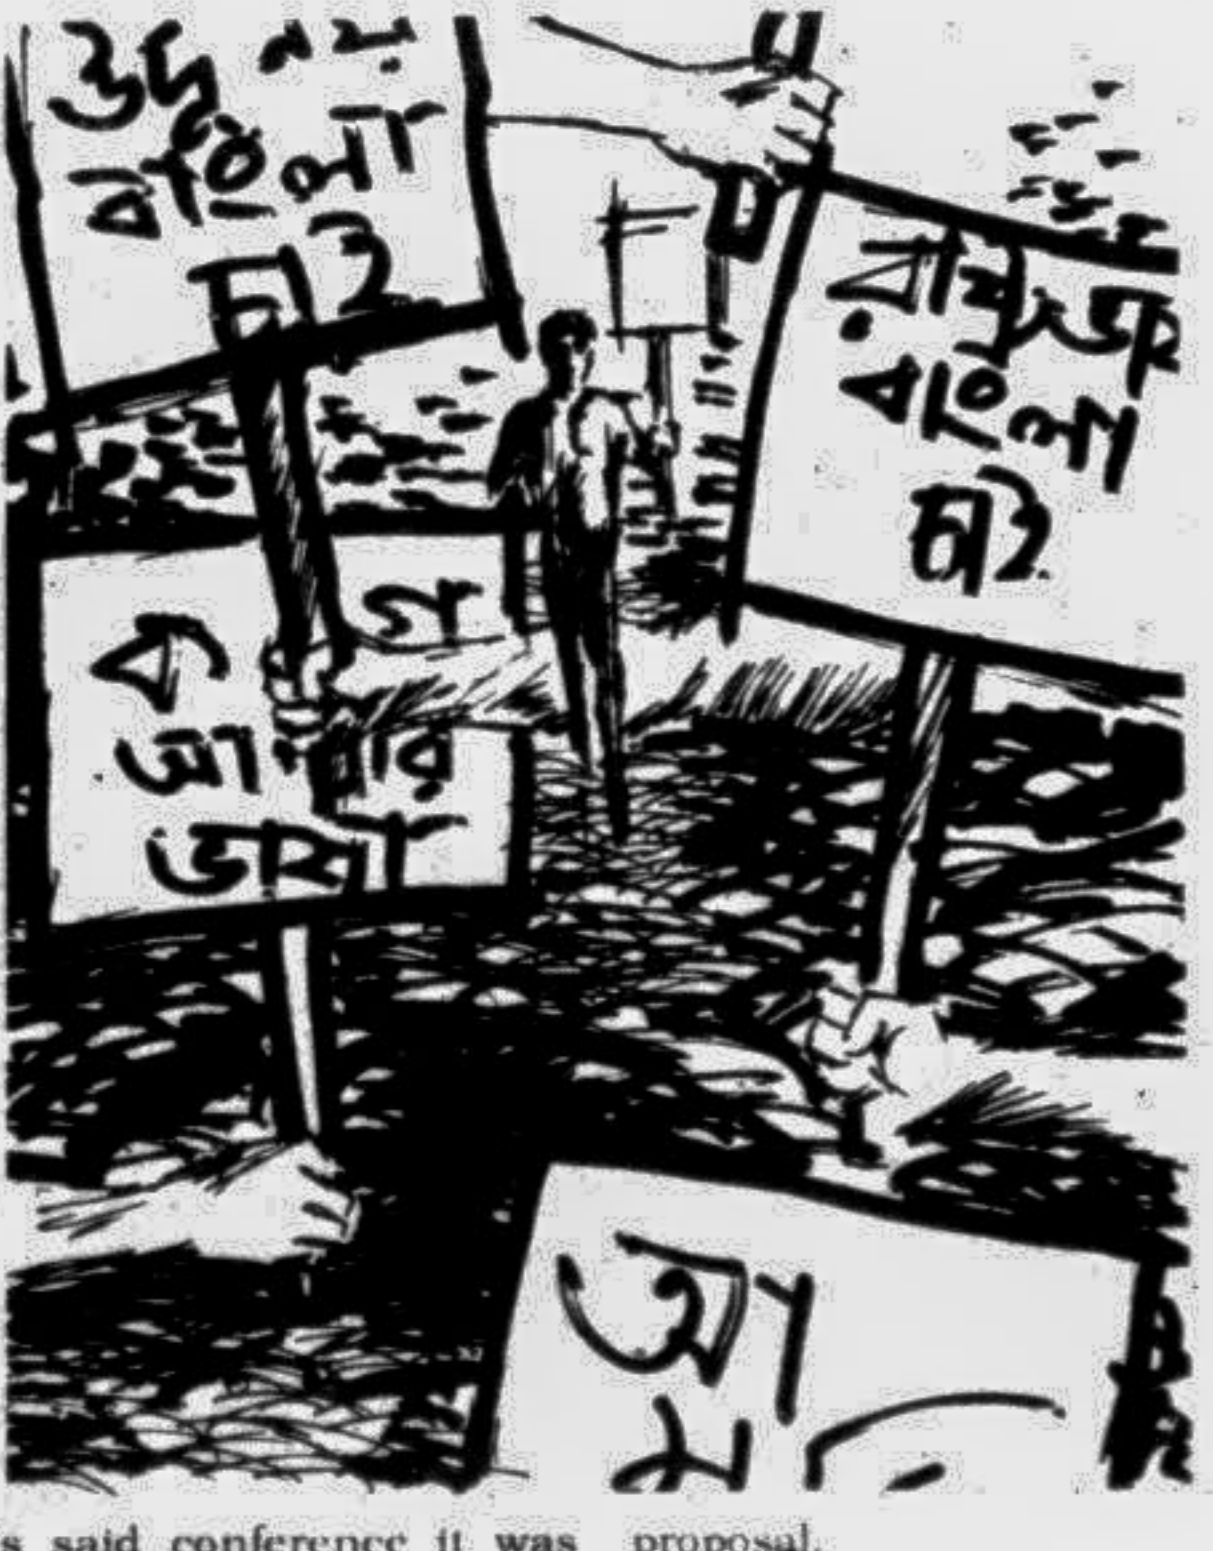 উদু নয়
বাংলা
চাই
রাষ্ট্রভা
বাংলা
চাই
ক গ
আমার
ভাষা
আ
ম
said conference it was proposal.